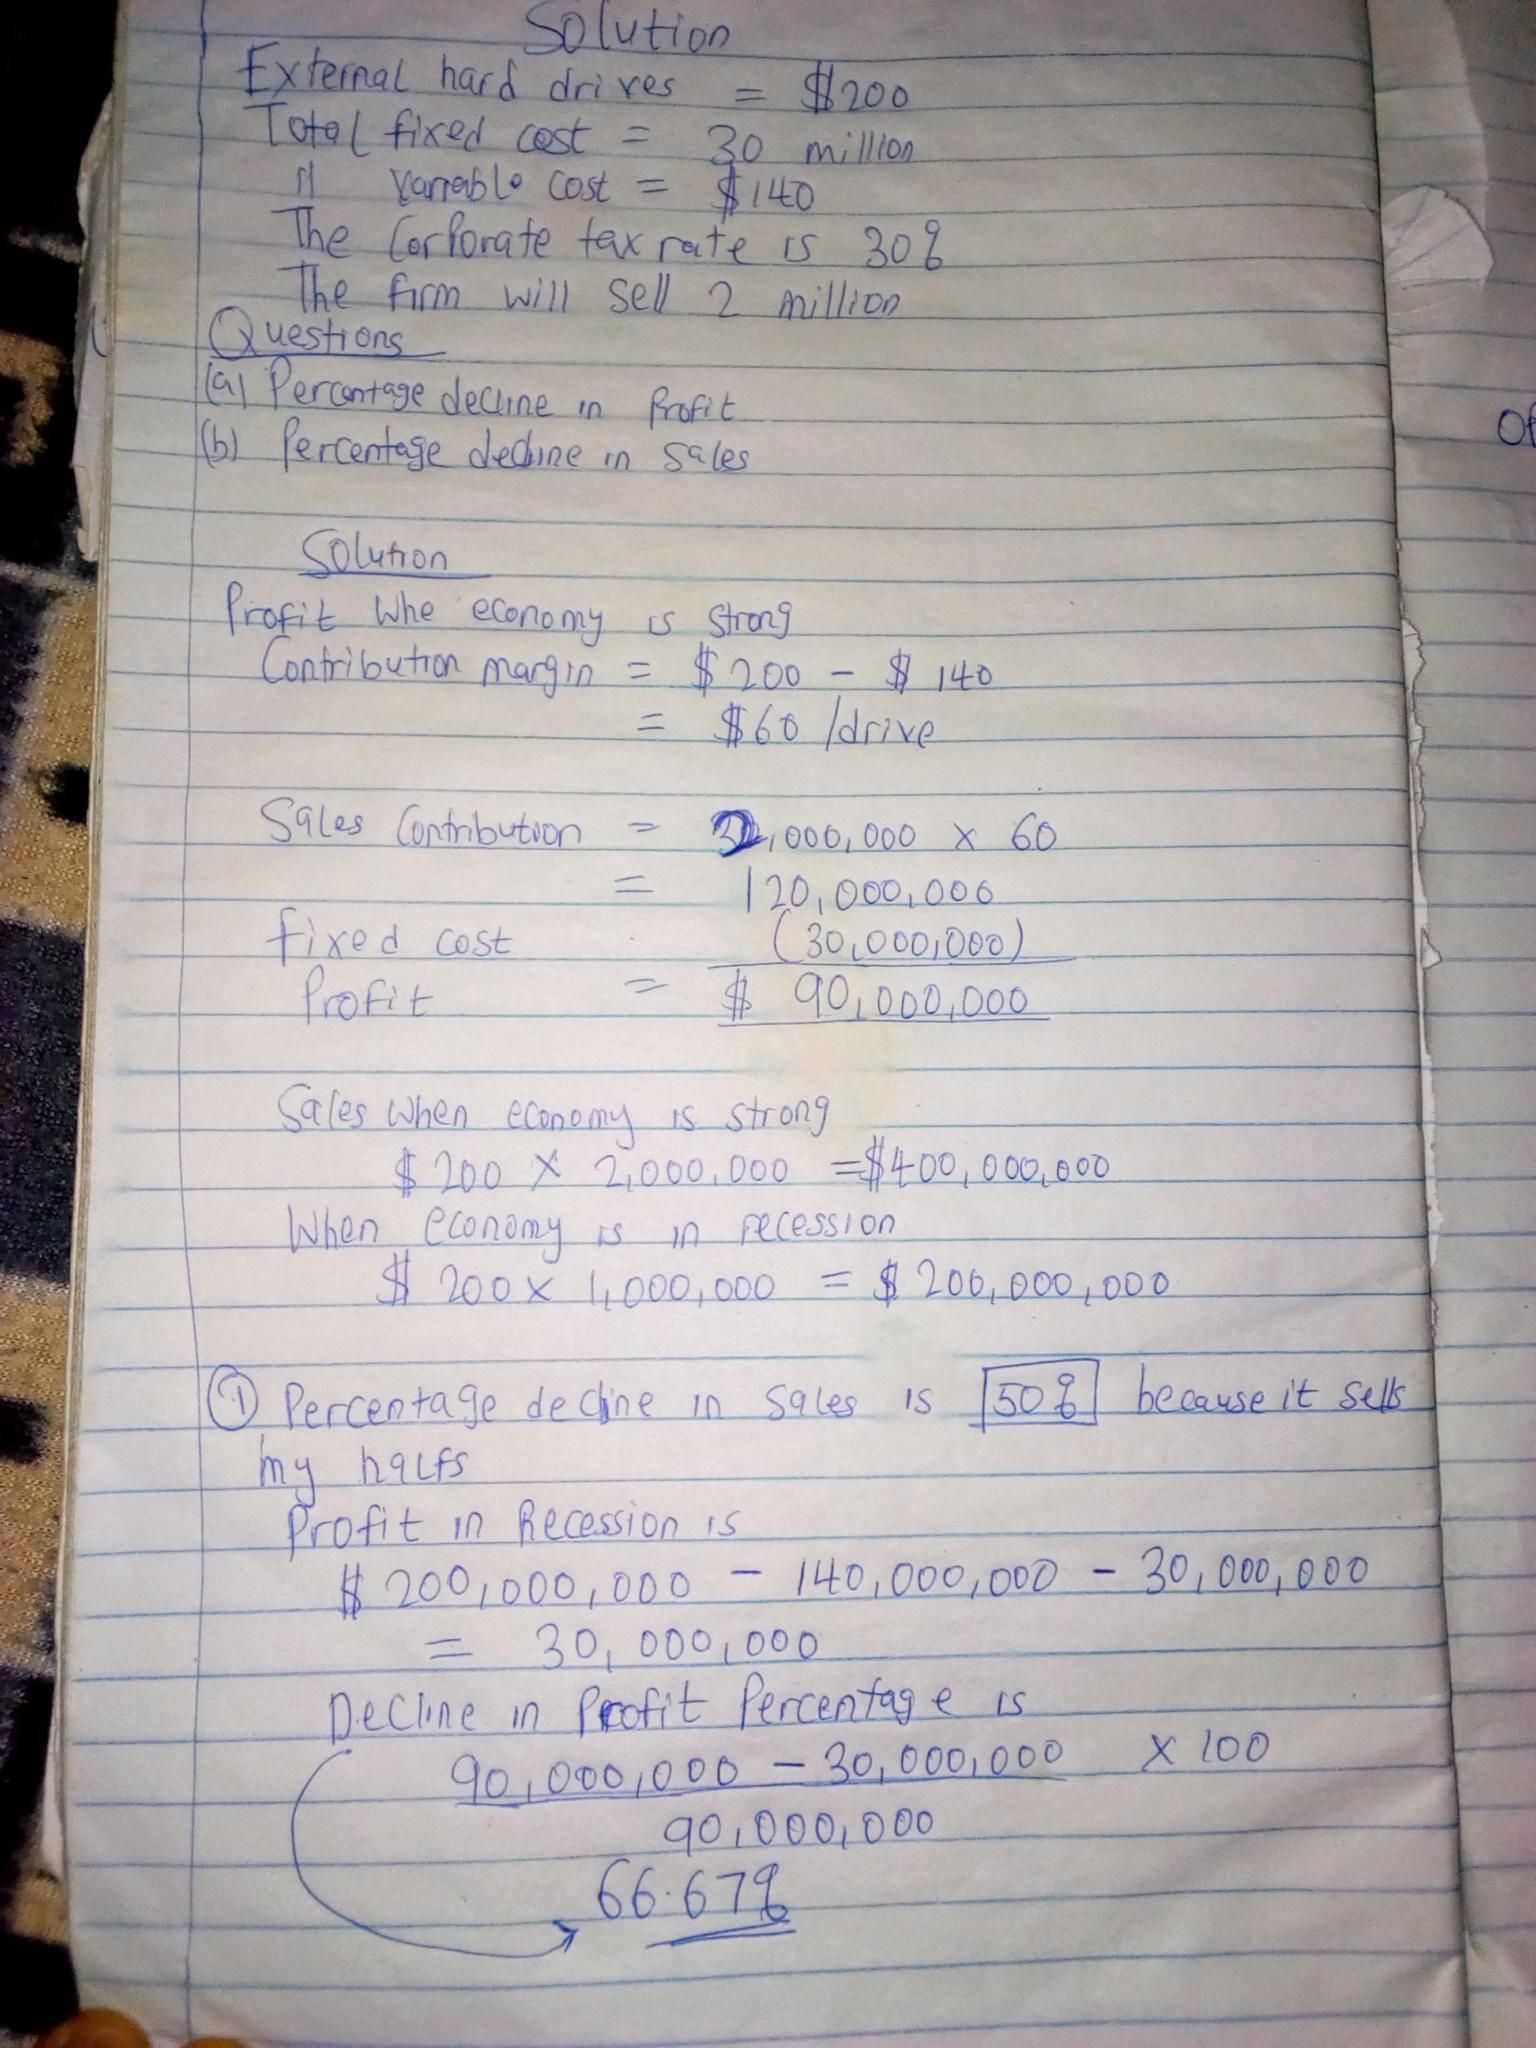 Solution
External hard drives = $200
Total fixed cost = 30 million
" Variable cost = $140
The Corporate tax rate is 30%
The firm will sell 2 million
Questions
(a) Percentage decline in Profit
(b) Percentage decline in sales
Solution
Profit Whe economy is strong
Contribution margin = $200 - $140
= $60 /drive
Sales Contribution = 2,000,000 x 60
= 120,000,000
fixed cost (30,000,000)
Profit = $ 90,000,000
Sales when economy is strong
$200 x 2,000,000 = $400,000,000
When economy is in recession
$ 200 x 1,000,000 = $ 200,000,000
① Percentage decline in Sales is 50% because it sells
my halfs
Profit in Recession is
$ 200,000,000 - 140,000,000 - 30,000,000
= 30,000,000
Decline in Profit Percentage is
90,000,000 - 30,000,000 x 100
90,000,000
66.67%
Of